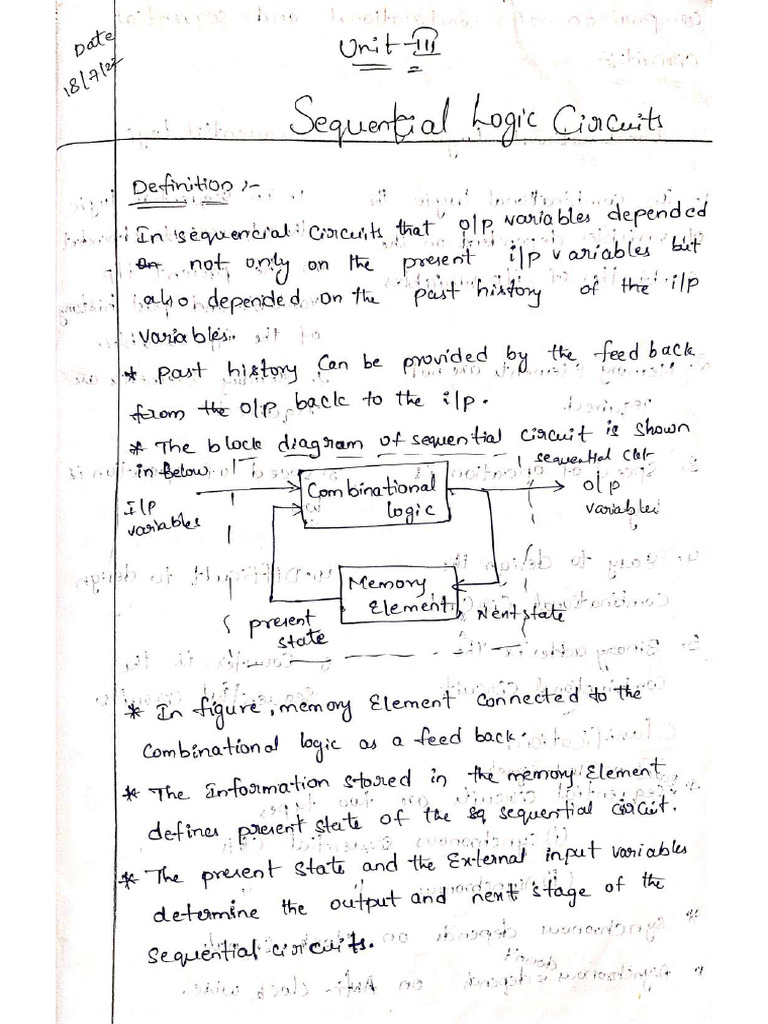 Date
18/7/22
Unit-III
Sequential Logic Circuits
Definition :-
In sequencial circuits that o/p variables depended
not only on the present i/p variables but
also depended on the past history of the i/p
variables.
* past history can be provided by the feed back
from the o/p back to the i/p.
* The block diagram of sequential circuit is shown
in Below
sequential Ckt
I/p
variables
Combinational
logic
o/p
variables
Memory
Element
present
state
Next state
* In figure, memory Element connected to the
combinational logic as a feed back.
* The Information stored in the memory Element
defines present state of the sq sequential circuit.
* The present state and the External input variables
determine the output and next stage of the
sequential circuits.